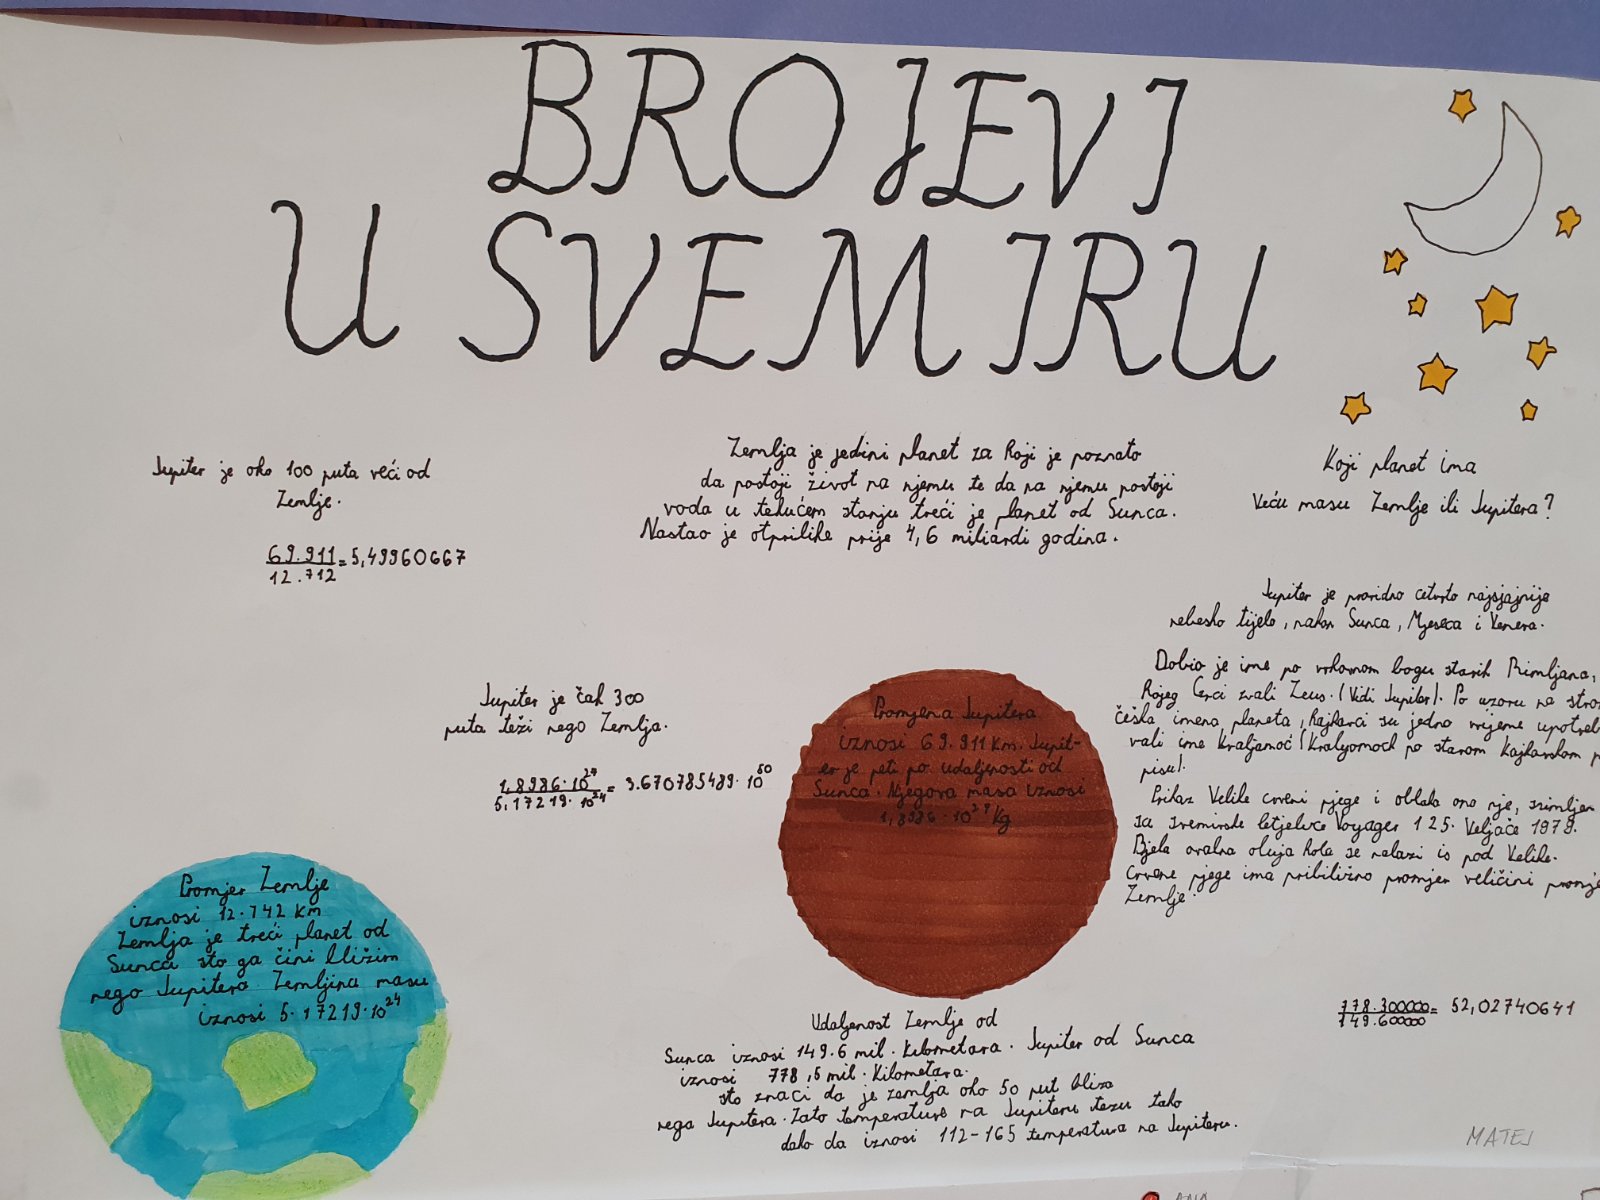 BROJEVI
U SVEMIRU
Jupiter je oko 100 puta veći od
Zemlje.
69.911
12.712
=5,49960667
Zemlja je jedini planet za koji je poznato
da postoji život na njemu te da na njemu postoji
voda u tekućem stanju treći je planet od Sunca.
Nastao je otprilike prije 4,6 milijardi godina.
Koji planet ima
Veću masu Zemlje ili Jupitera?
Jupiter je prividno četvrto najsjajnije
nebesko tijelo, nakon Sunca, Mjeseca i Venera.
Dobio je ime po vrhovnom bogu starih Rimljana,
kojeg Grci zvali Zeus. (Vidi Jupiter). Po uzoru na
češka imena planeta, kajkavci su jedno vrijeme
vali ime Kraljamoć (Kralyomoch po starom kajkavskom
pisu).
Prikaz Velike crvene pjege i oblaka oko nje, snimljen
sa svemirske letjelice Voyager 1 25. Veljače 1979.
Bjela ovalna oluja koja se nalazi is pod Velike.
Crvene pjege ima približno promjer veličini
Zemlje.
Jupiter je čak 300
puta teži nego Zemlja.
1,8986·10²⁷
5,17219·10²⁴
=3.670785489·10⁵⁰
Promjena Jupitera
iznosi 69.911 km. Jupit-
er je peti po udaljenosti od
Sunca. Njegova masa iznosi
1,8986·10²⁷ Kg
Promjer Zemlje
iznosi 12.742 km
Zemlja je treći planet od
Sunca sto ga čini bližim
nego Jupitera. Zemljina masu
iznosi 5.17219·10²⁴
Udaljenost Zemlje od
Sunca iznosi 149.6 mil. kilometara. Jupiter od Sunca
iznosi 778,5 mil. Kilometara.
sto znaci da je zemlja oko 50 put bliza
nego Jupitera. Zato temperature na Jupiteru tezu tako
dako da iznosi 112-165 temperatura na Jupiteru.
778.300000
149.600000
= 52,02740641
MATEJ
ANA